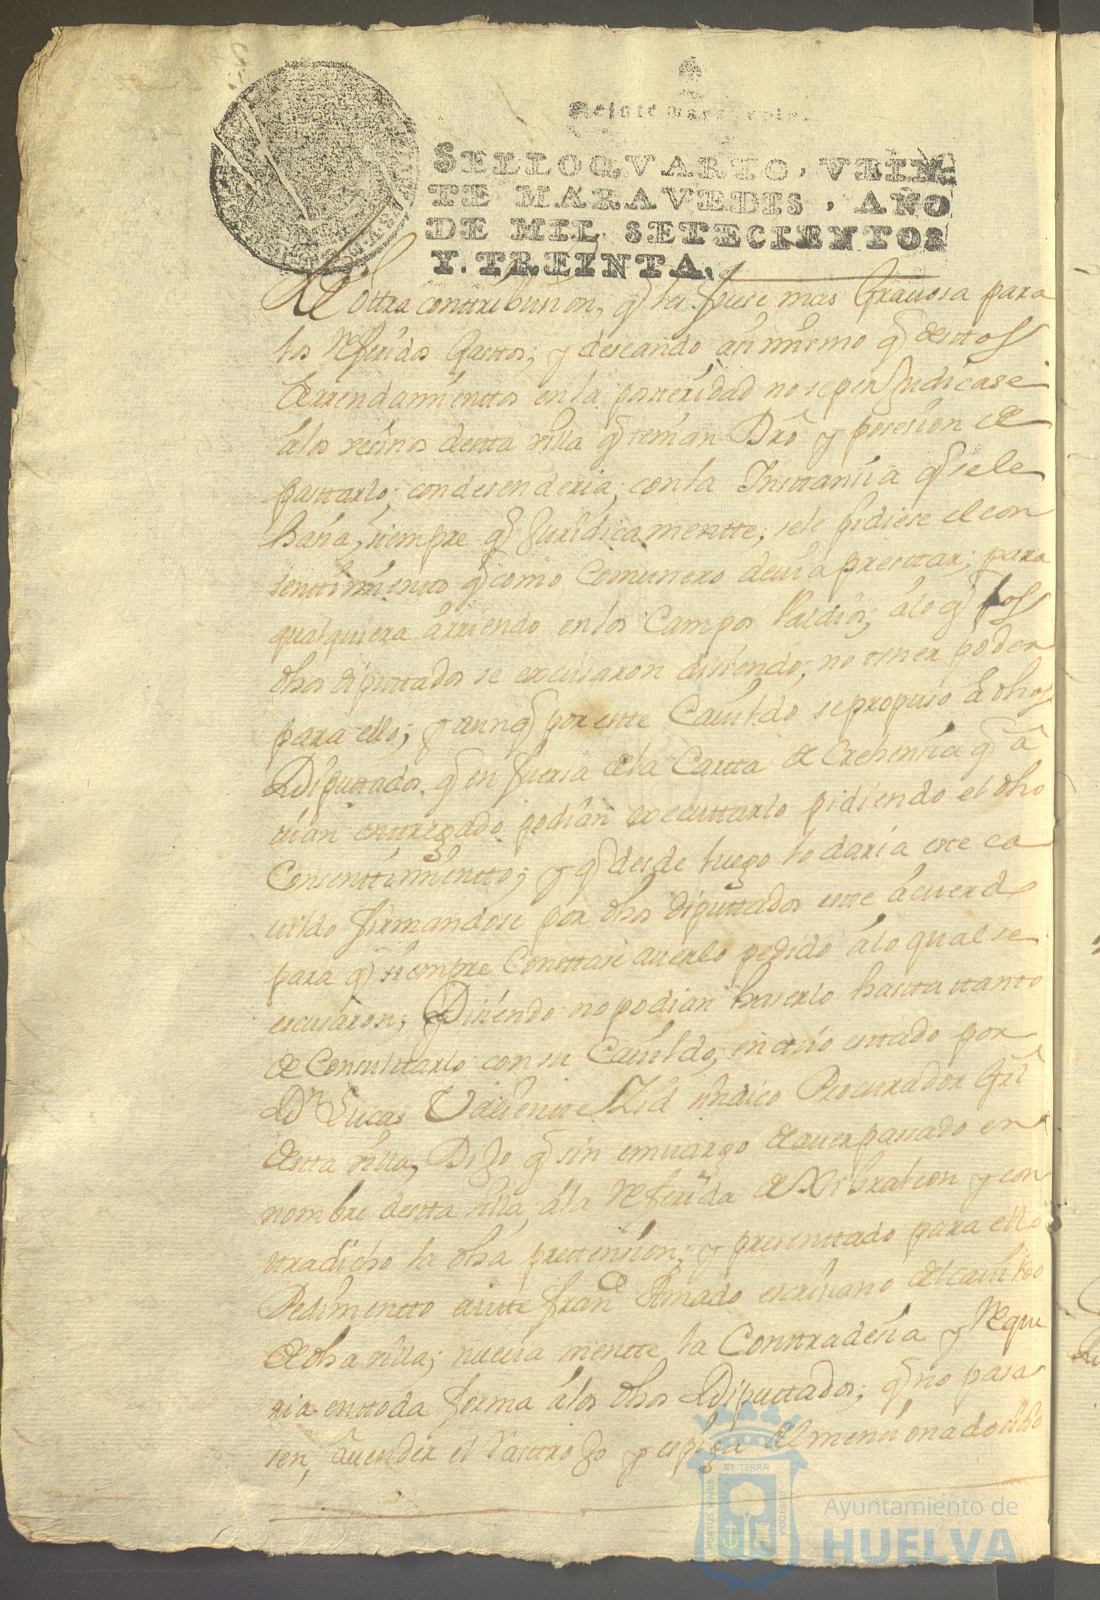 SELLO QVARTO, VEIN-
TE MARAVEDIS, AÑO
DE MIL SETECIENTOS
Y TREINTA.
otra contribusion, q les fuese mas Gravosa para
los Referidos Gastos; y deseando assi mismo q destos
Arrendamienttos en la posteridad no se perjudicase
a los vesinos destta villa q tenian Dro y posesion de
pasttarlo, condesenderia, con la Insttansia q se le
hasia, siempre q Juridicamentte, se le pidiese el con
senttimientto q como Comunero devia presttar; para
qualquiera arriendo en los Campos Valdios; a lo q los
dhos diputtados se excusaron disiendo, no tener poder
para ello; y aunq por estte Cavildo se propuso a dhos
Diputtados, q en fuersa de la Cartta de Crehensia q a
vian enttregado podian executtarlo pidiendo el dho
Consenttimientto; y q desde luego lo daria este ca
vildo firmandose por dhos diputtados este acuerdo
para q siempre Consttase averlo pedido a lo qual se
escusaron; Disiendo no podian haserlo hastta tanto
de Consulttarlo con su Cavildo, en cuio esttado por
Dn Lucas sindico Procurador Grl
destta villa, Dijo q sin emvargo de aver pasado en
nombre destta villa, a la Referida de y con
tradicho la dha prettension; y presenttado para ello
Pedimentto antte Franco Amado escrivano del cavildo
de dha villa; nueva mentte la Conttradesia y Reque
ria en ttoda forma a los dhos Diputtados; q no pasa
sen, a vender el Rasttrojo y espiga del mensionado
ET TERRA
CUSTODIA
Ayuntamiento de
HUELVA